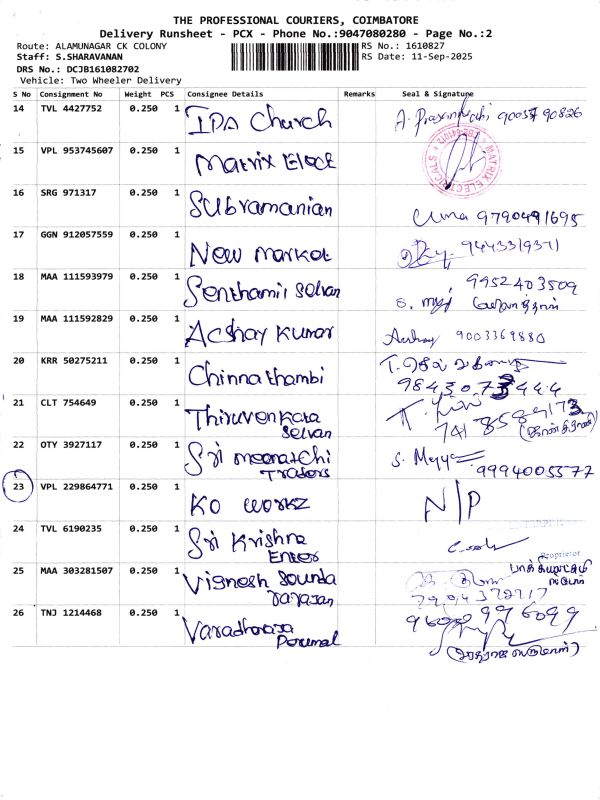 THE PROFESSIONAL COURIERS, COIMBATORE
Delivery Runsheet - PCX - Phone No.:9047080280 - Page No.:2
Route: ALAMUNAGAR CK COLONY
RS No.: 1610827
Staff: S.SHARAVANAN
RS Date: 11-Sep-2025
DRS No.: DCJB161082702
Vehicle: Two Wheeler Delivery
S No Consignment No Weight PCS Consignee Details Remarks Seal & Signature
14 TVL 4427752 0.250 1 IPA Church
15 VPL 953745607 0.250 1 Matrix Elect
MATRIX ELECTRICALS
16 SRG 971317 0.250 1 Subramanian Uma 9790491695
17 GGN 912057559 0.250 1 New Market 9443319371
18 MAA 111593979 0.250 1 Senthamil Selvan 9952403509
19 MAA 111592829 0.250 1 Acshay Kumar 9003369880
20 KRR 50275211 0.250 1 Chinnathambi
21 CLT 754649 0.250 1 Thiruvenkata
Selvan
22 OTY 3927117 0.250 1 Sri meenatchi
Traders 9994005577
23 VPL 229864771 0.250 1 KO WORKZ N/P
24 TVL 6190235 0.250 1 Sri Krishna
Enter
Proprietor
25 MAA 303281507 0.250 1 Vignesh Sounda
rarajan
26 TNJ 1214468 0.250 1 Varadharaja
Perumal